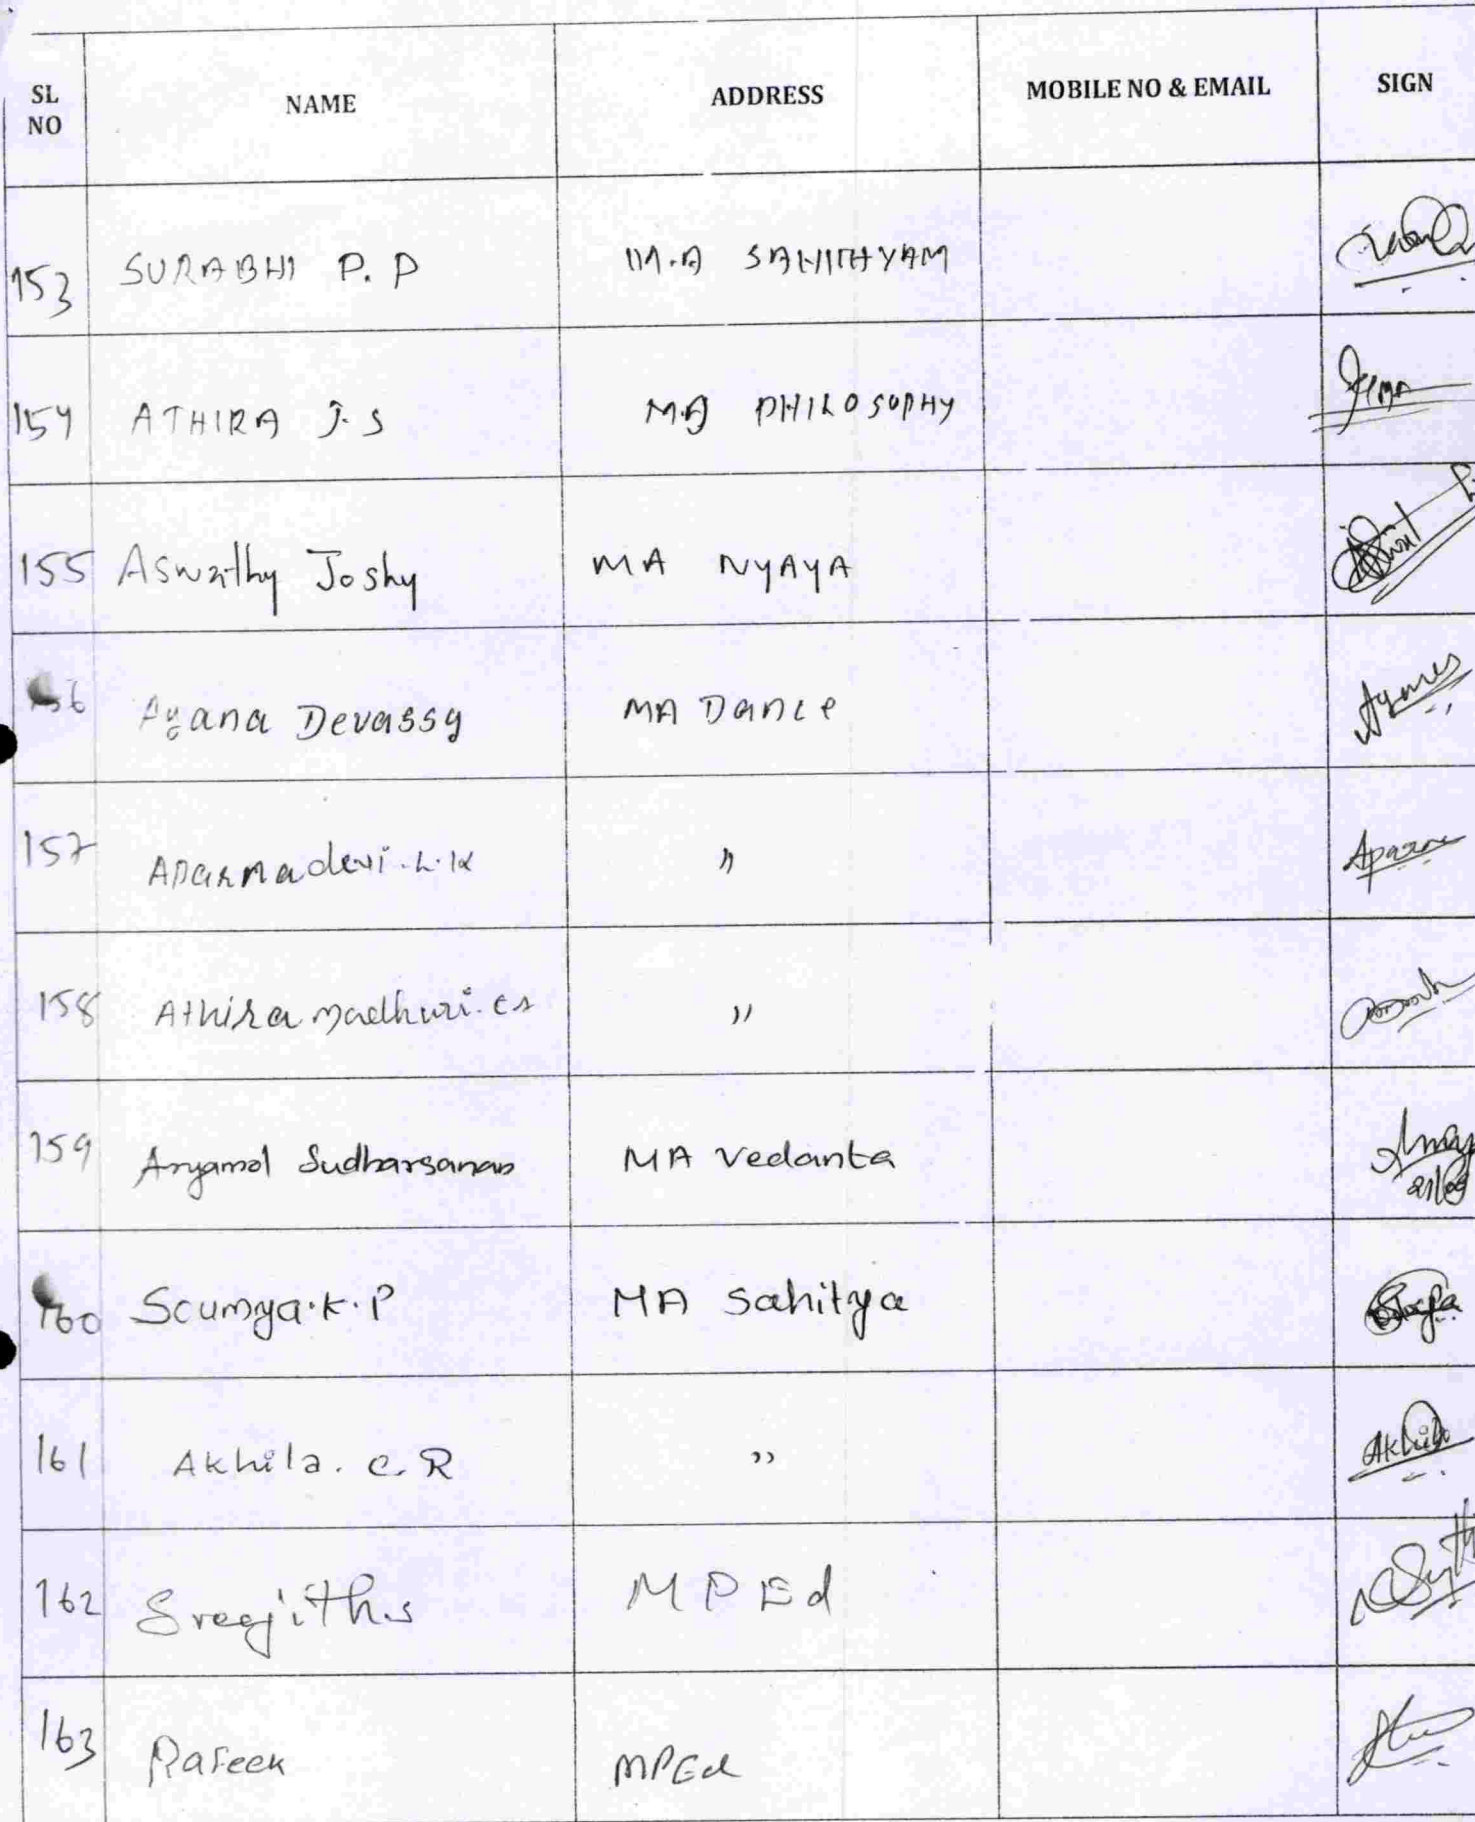 SL NO NAME ADDRESS MOBILE NO & EMAIL SIGN
153 SURABHI P. P M.A SAHITHYAM
154 ATHIRA J. S MA PHILOSOPHY
155 Aswathy Joshy MA NYAYA
156 Ayana Devassy MA Dance
157 Aparna devi. L. K "
158 Athira Madhuri. C S "
159 Aryamol Sudharsanan MA Vedanta
160 Soumya. K. P MA Sahitya
161 Akhila. C. R "
162 Sreejith.s M P Ed
163 Rafeek MPEd